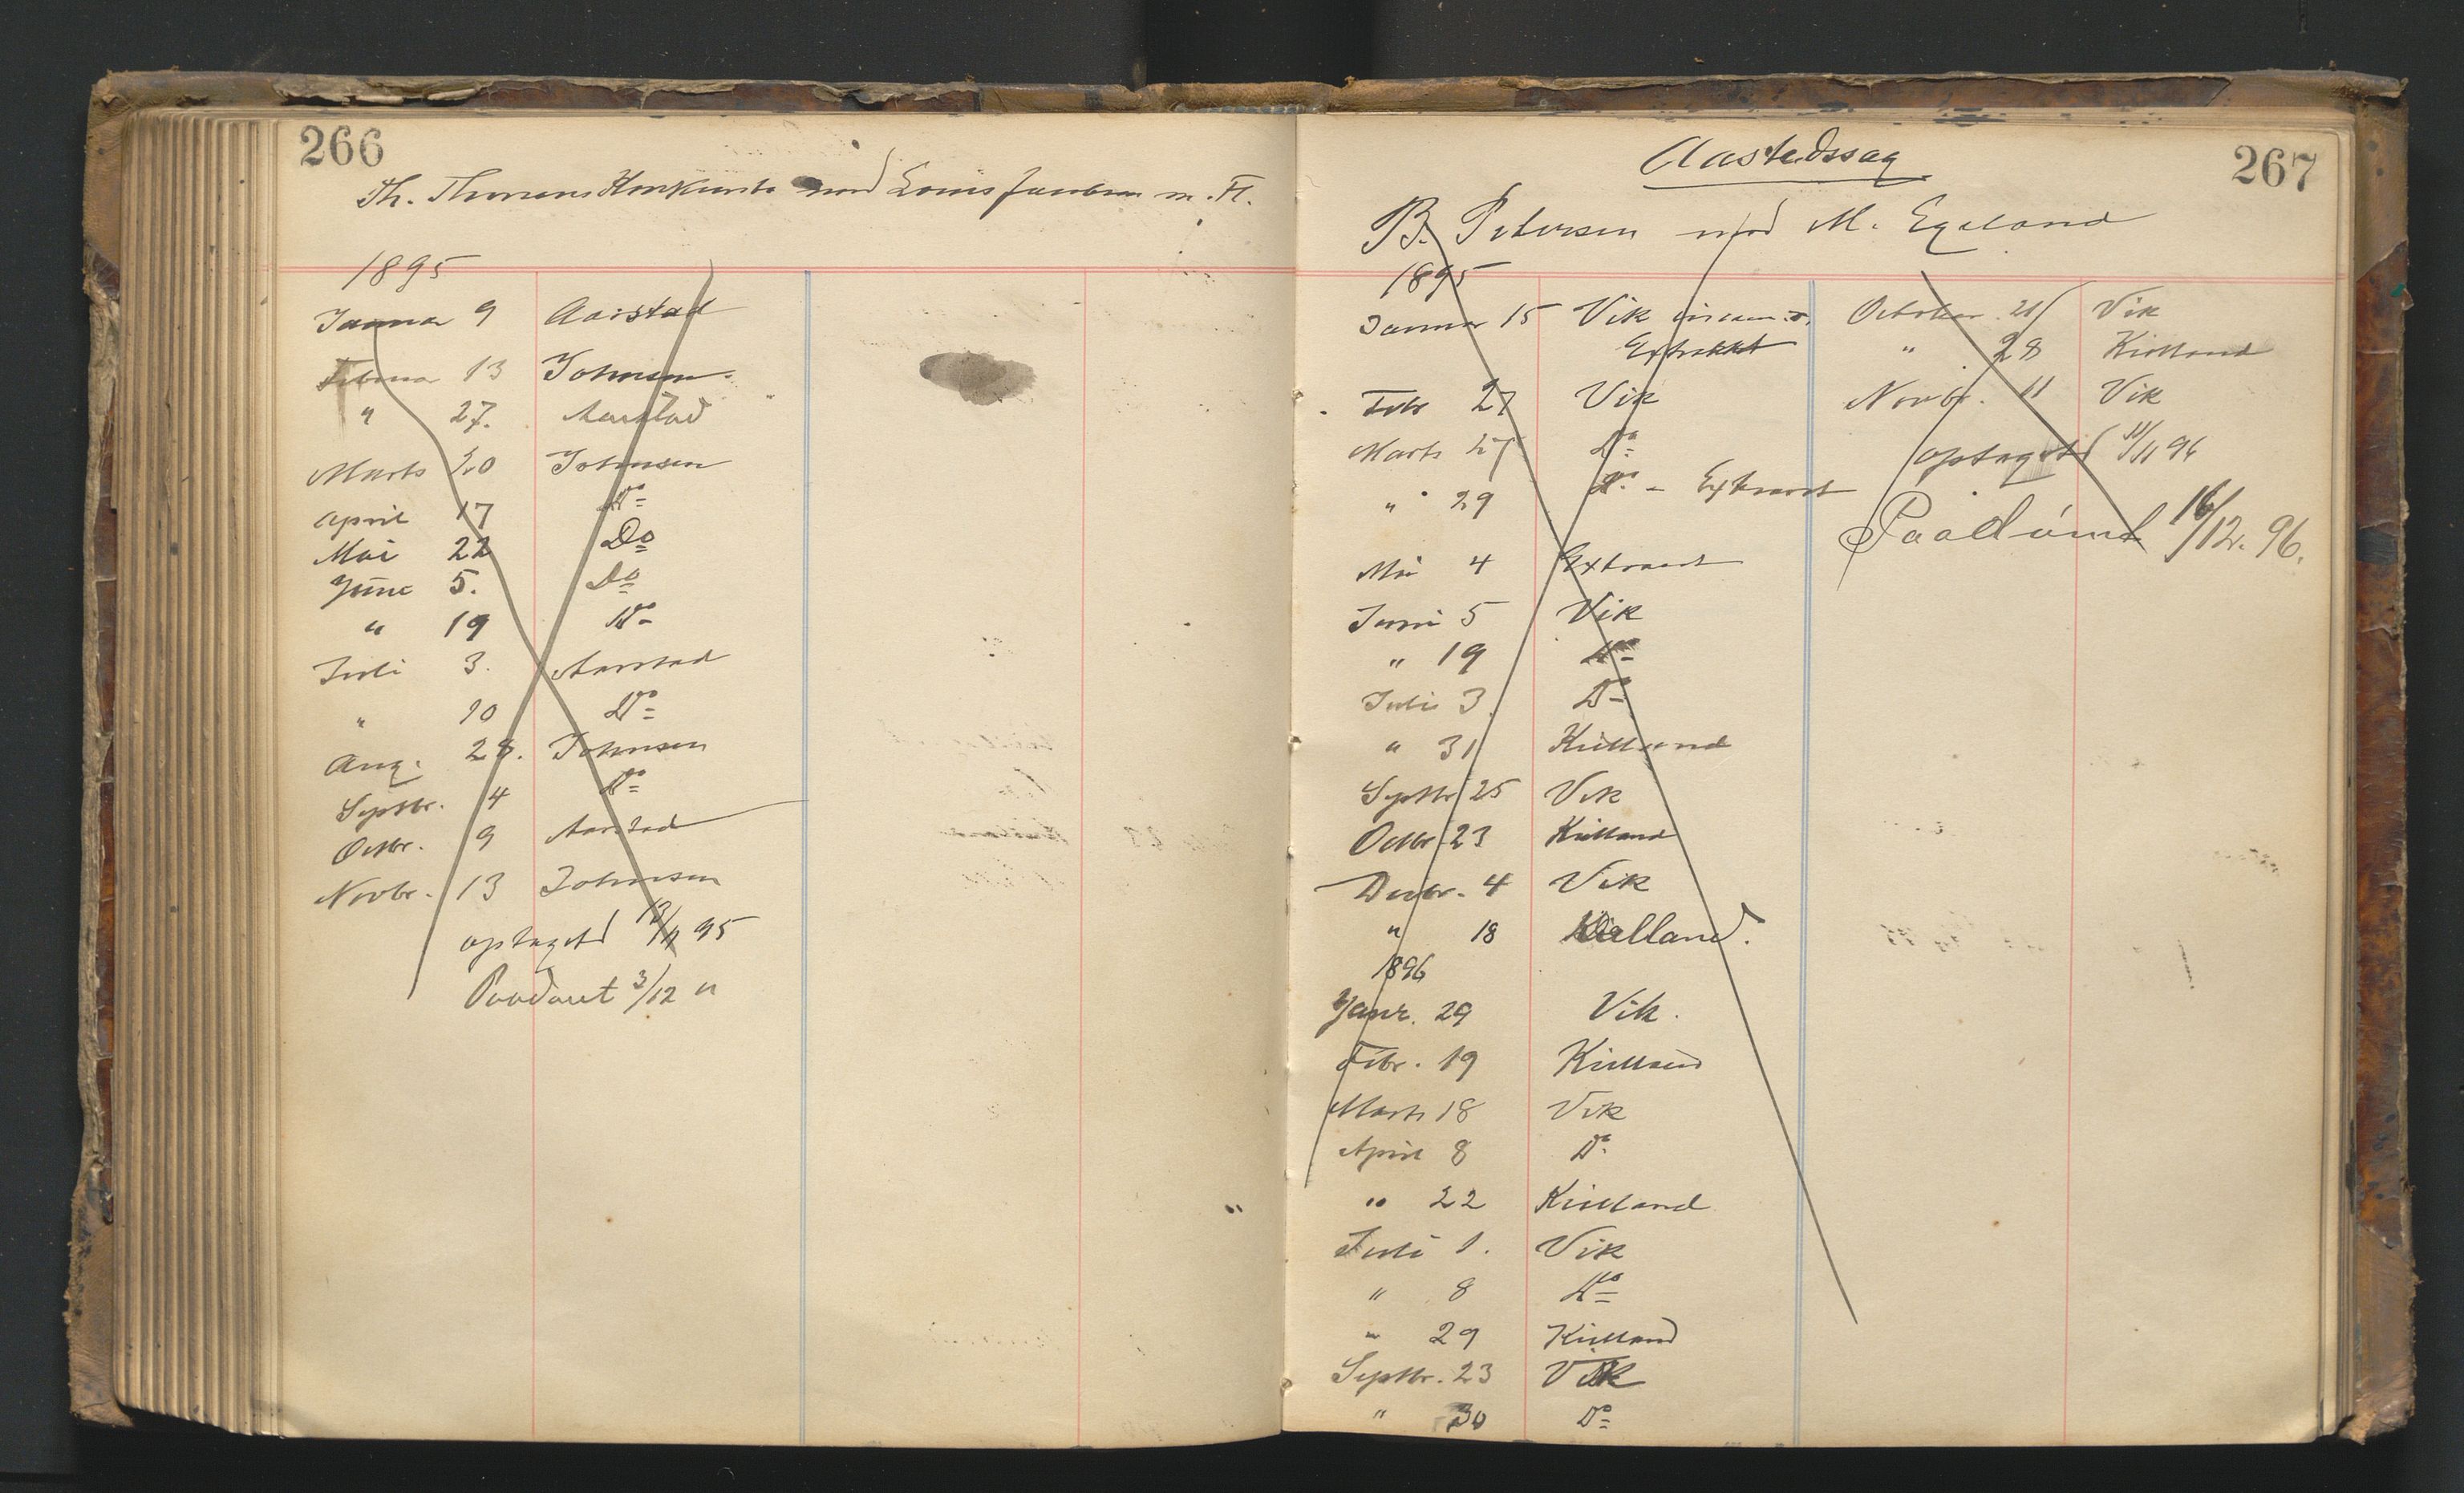 266
Th. Thorsens Konkursbo mod Louis Jacobsen m. Fl.
1895
Januar 9 Aarstad
Februar 13 Johnsen
" 27. Aarstad
Marts 20 Johnsen
April 17 Do
Mai 22 Do
June 5. Do
" 19 Do
Juli 3. Aarstad
" 10 Do
Aug. 28. Johnsen
Septbr. 4 Do
Octbr. 9 Aarstad
Novbr. 13 Johnsen
optaget 13/11 95
Paadømt 3/12 "
267
Aastedssag
B. Petersen mod M. Egeland
1895
Januar 15 Vik
Extrakt
Febr 27 Vik
Marts 27 Do
" 29 Do - Extraret
Mai 4 Extraret
Juni 5 Vik
" 19 Do
Juli 3. Do
" 31 Kielland
Septbr 25 Vik
Octbr 23 Kielland
Decbr. 4 Vik
" 18 Kielland.
1896
Janr. 29 Vik.
Febr. 19 Kielland
Marts 18 Vik
April 8 Do
" 22 Kielland
Juli 1. Vik
" 8 Do
" 29 Kielland
Septbr. 23 Vik
" 30 Do
October 21 Vik
" 28 Kielland
Novbr. 11 Vik
optaget 11/11 96
Paadømt 16/12. 96.